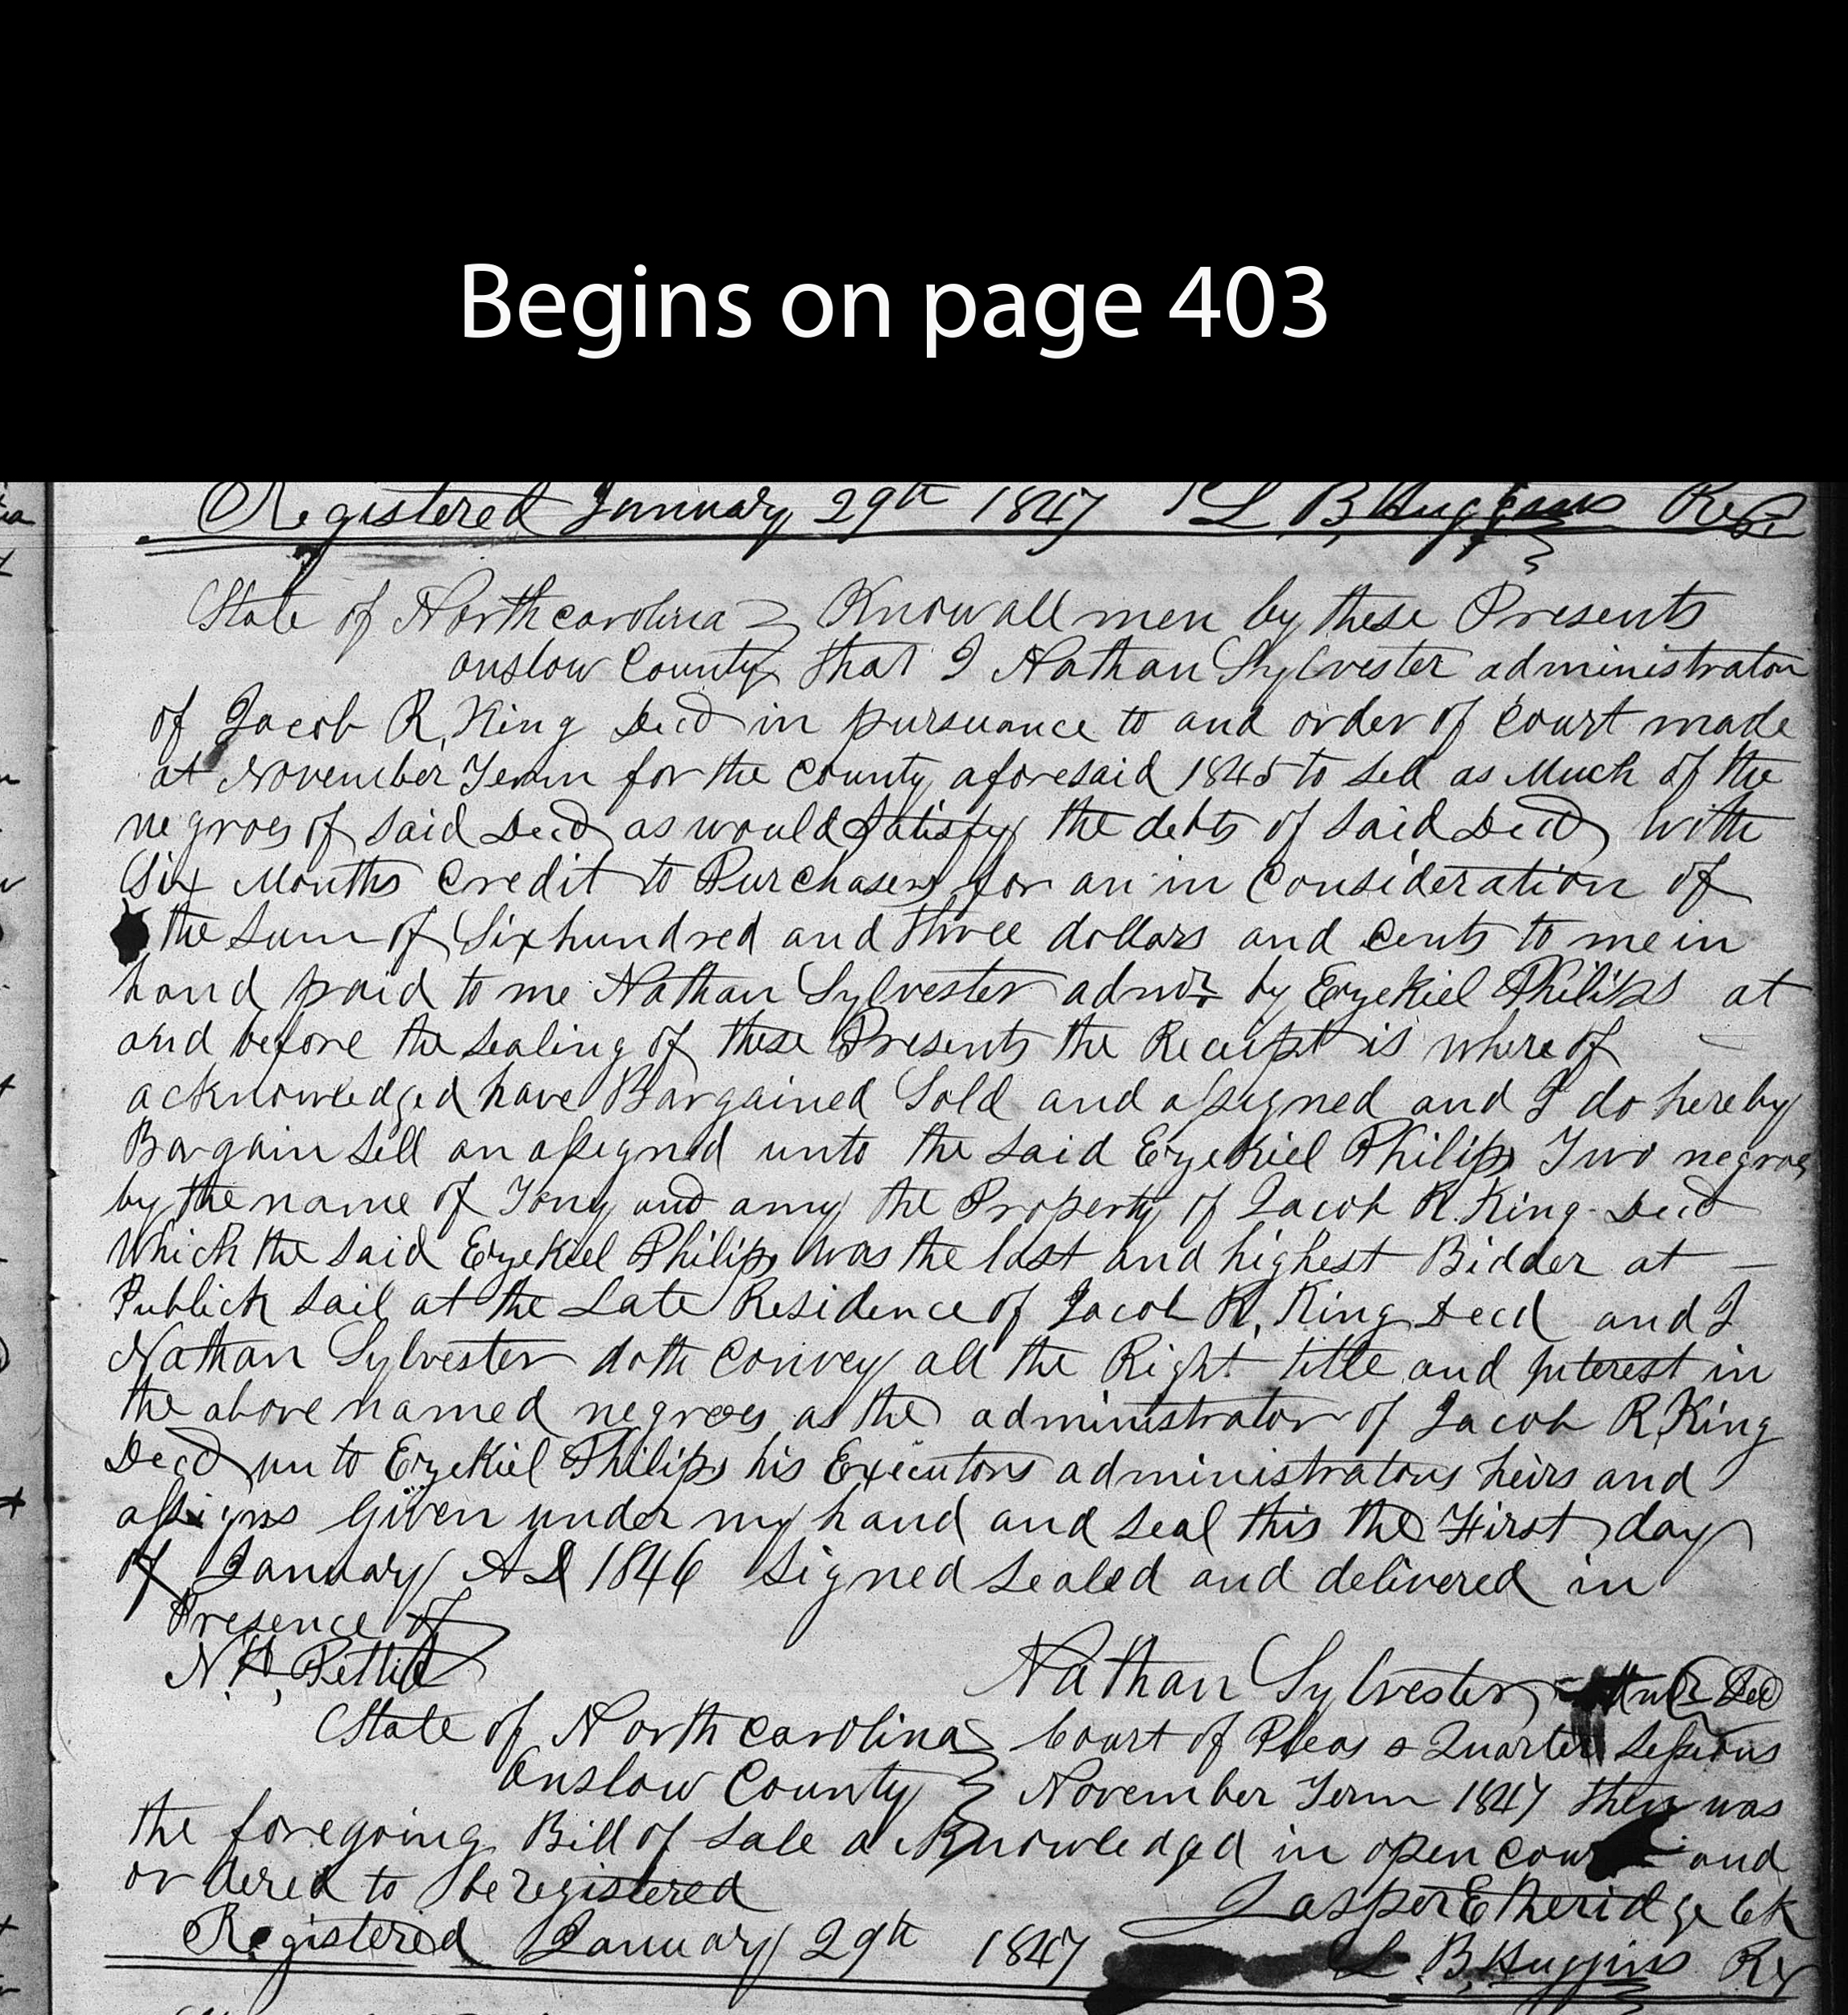 Begins on page 403
Registered January 29th 1847 L B, Huggins Regr
State of North carolina Know all men by these Presents
onslow County that I Nathan Sylvester administrator
of Jacob R, King Decd in pursuance to and order of Court made
at November Term for the County aforesaid 1845 to sell as Much of the
negroes of said Decd as would Satisfy the debts of said Decd with
Six Months Credit to Purchasers for an in Consideration of
the sum of Six hundred and three dollars and Cents to me in
hand paid to me Nathan Sylvester admr by Ezekiel Philips at
and before the sealing of these Presents the Receipt is where of
acknowledged have Bargained Sold and assigned and I do hereby
Bargain Sell an assignd unto the said Ezekiel Philips Two negroes
by the name of Tony and amy the Property of Jacob R. King Decd
Which the said Ezekiel Philips was the last and highest Bidder at —
Publick sail at the Late Residence of Jacob R, King Decd and I
Nathan Sylvester doth Convey all the Right title and Interest in
the above named negroes as the administrator of Jacob R, King
Decd un to Ezekiel Philips his Executors administrators heirs and
assigns Given under my hand and seal this the First day
of January AD 1846 Signed Sealed and delivered in
Presence of
N. Nathan Sylvester
State of North Carolina Court of Pleas & Quarter Sessions
Onslow County November Term 1847 then was
the foregoing Bill of Sale acknowledged in open court and
ordered to be registered
Jasper Etheridge Clk
Registered January 29th 1847 L. B, Huggins Rr